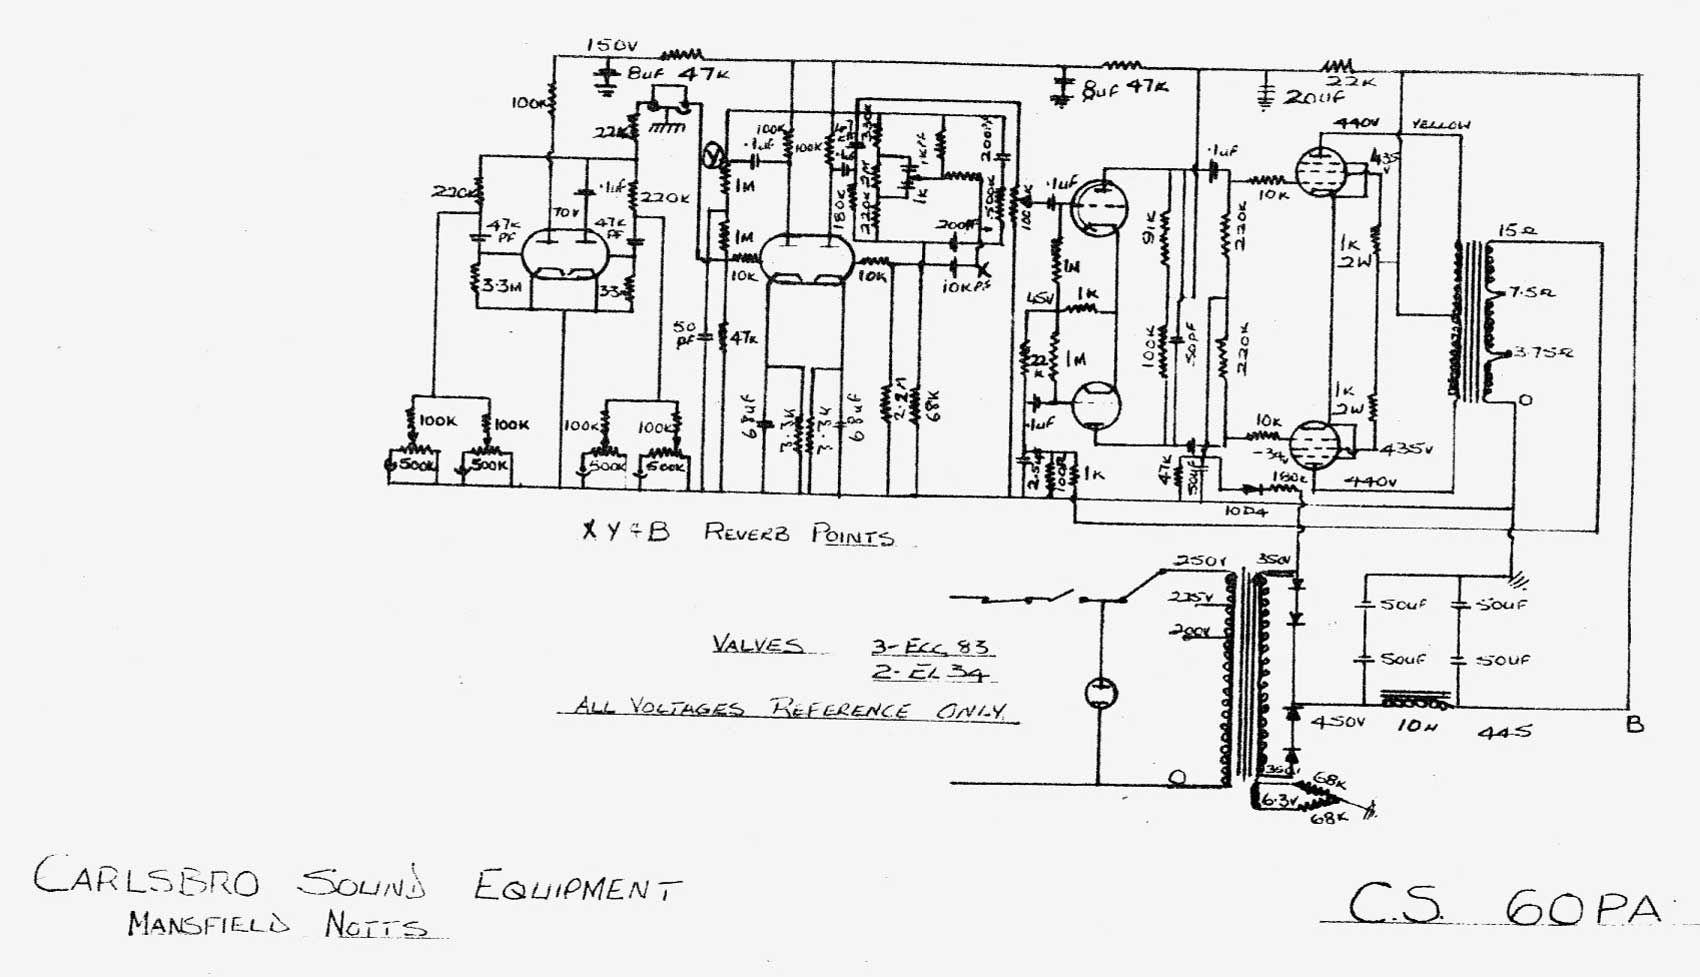 150V
8uF 47K
8uF 47K
22K
20uF
100K
22K
440V YELLOW
435V
.1uF
100K
100K
330K
1KPF
200PF
Y
1M
1M
220K
.1uF
220K
70V
47K PF
47K PF
180K
220K
2M
1K
500K
100K
.1uF
.1uF
10K
91K
220K
1K 2W
15Ω
7.5Ω
3.75Ω
O
3.3M
33
10K
10K
200PF
10KPF
X
1M
45V
1K
22K
1M
100K
50PF
220K
1K 2W
50 PF
47K
100K
100K
100K
100K
500K
500K
500K
500K
68uF
3.3K
3.3K
68uF
2.2M
68K
.1uF
2.5uF
100Ω
1K
47K
50uF
10K
-34
435V
180K
10D4
440V
X Y + B REVERB POINTS
250V
225V
200V
350V
50uF
50uF
50uF
50uF
VALVES 3-ECC 83
2-EL 34
ALL VOLTAGES REFERENCE ONLY
450V
10H
445
B
O
350V
6.3V
68K
68K
CARLSBRO SOUND EQUIPMENT
MANSFIELD NOTTS
C.S. 60PA